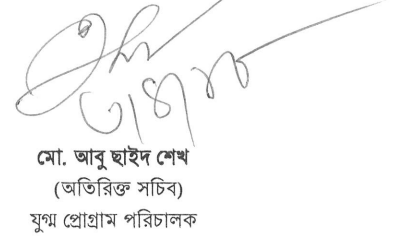 মো. আবু ছাইদ শেখ
(অতিরিক্ত সচিব)
যুগ্ম প্রোগ্রাম পরিচালক